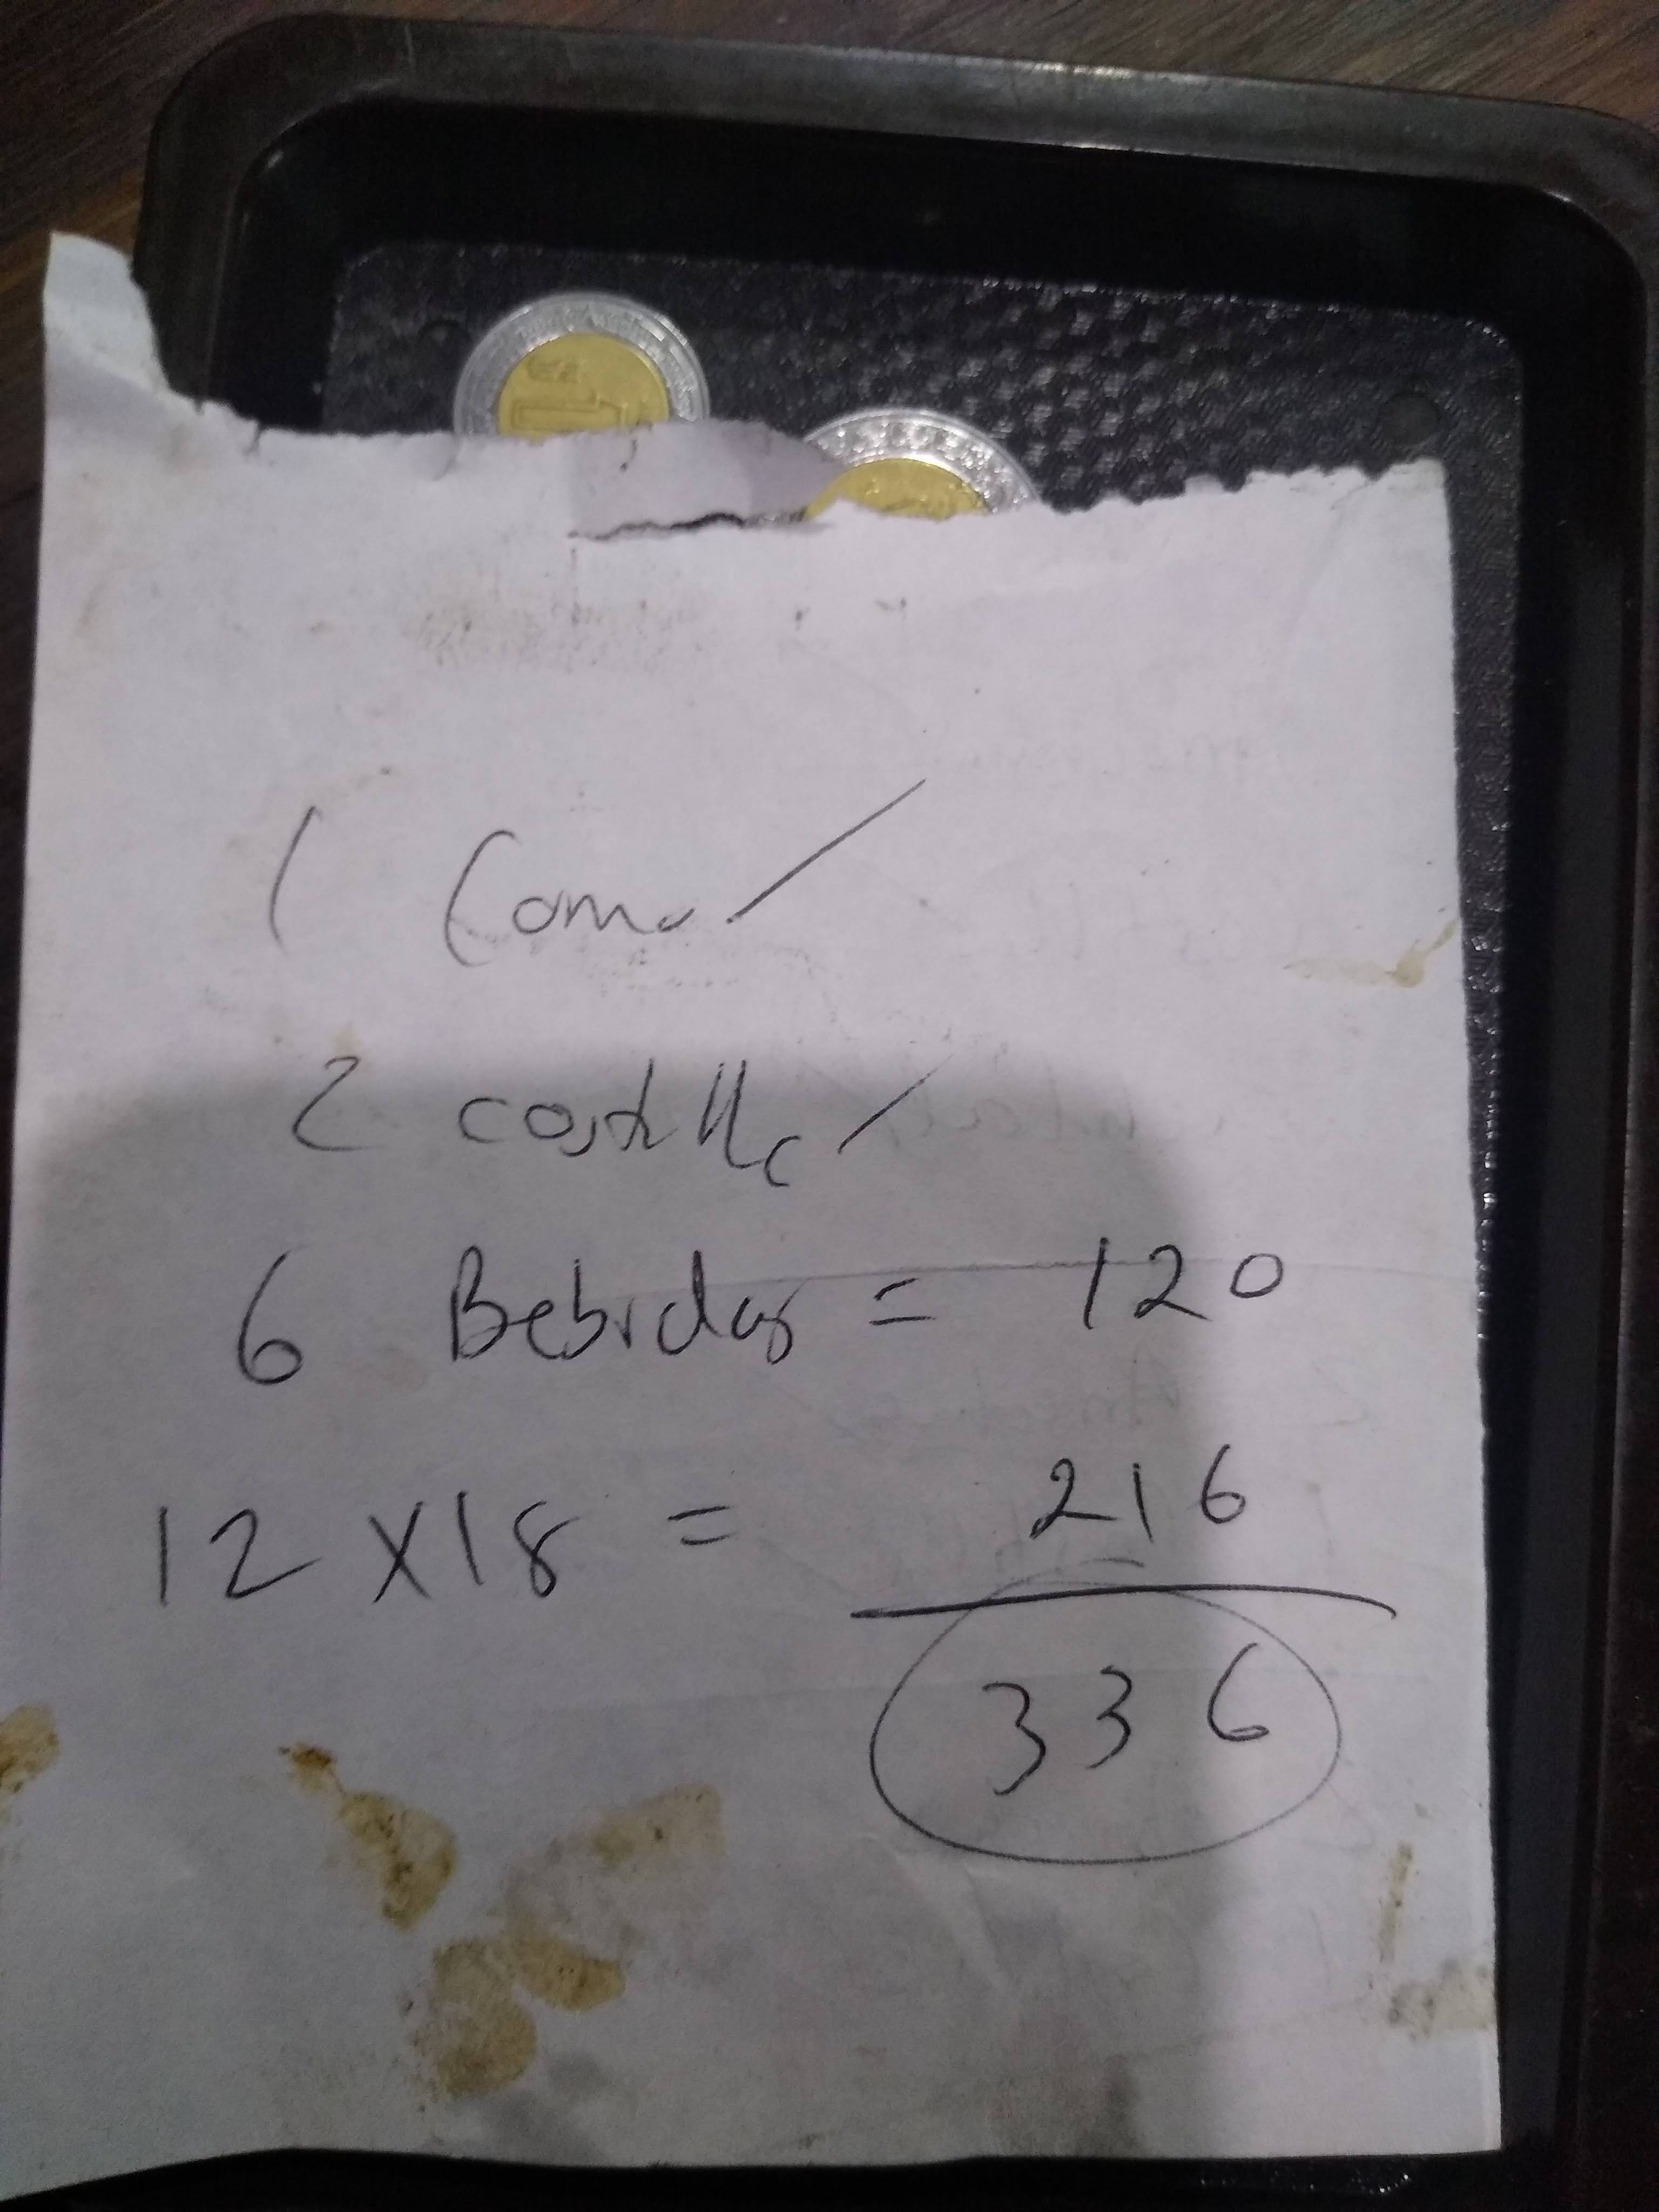 1
2 costilla
6 Bebidas = 120
12 X 18 = 216
336
$1